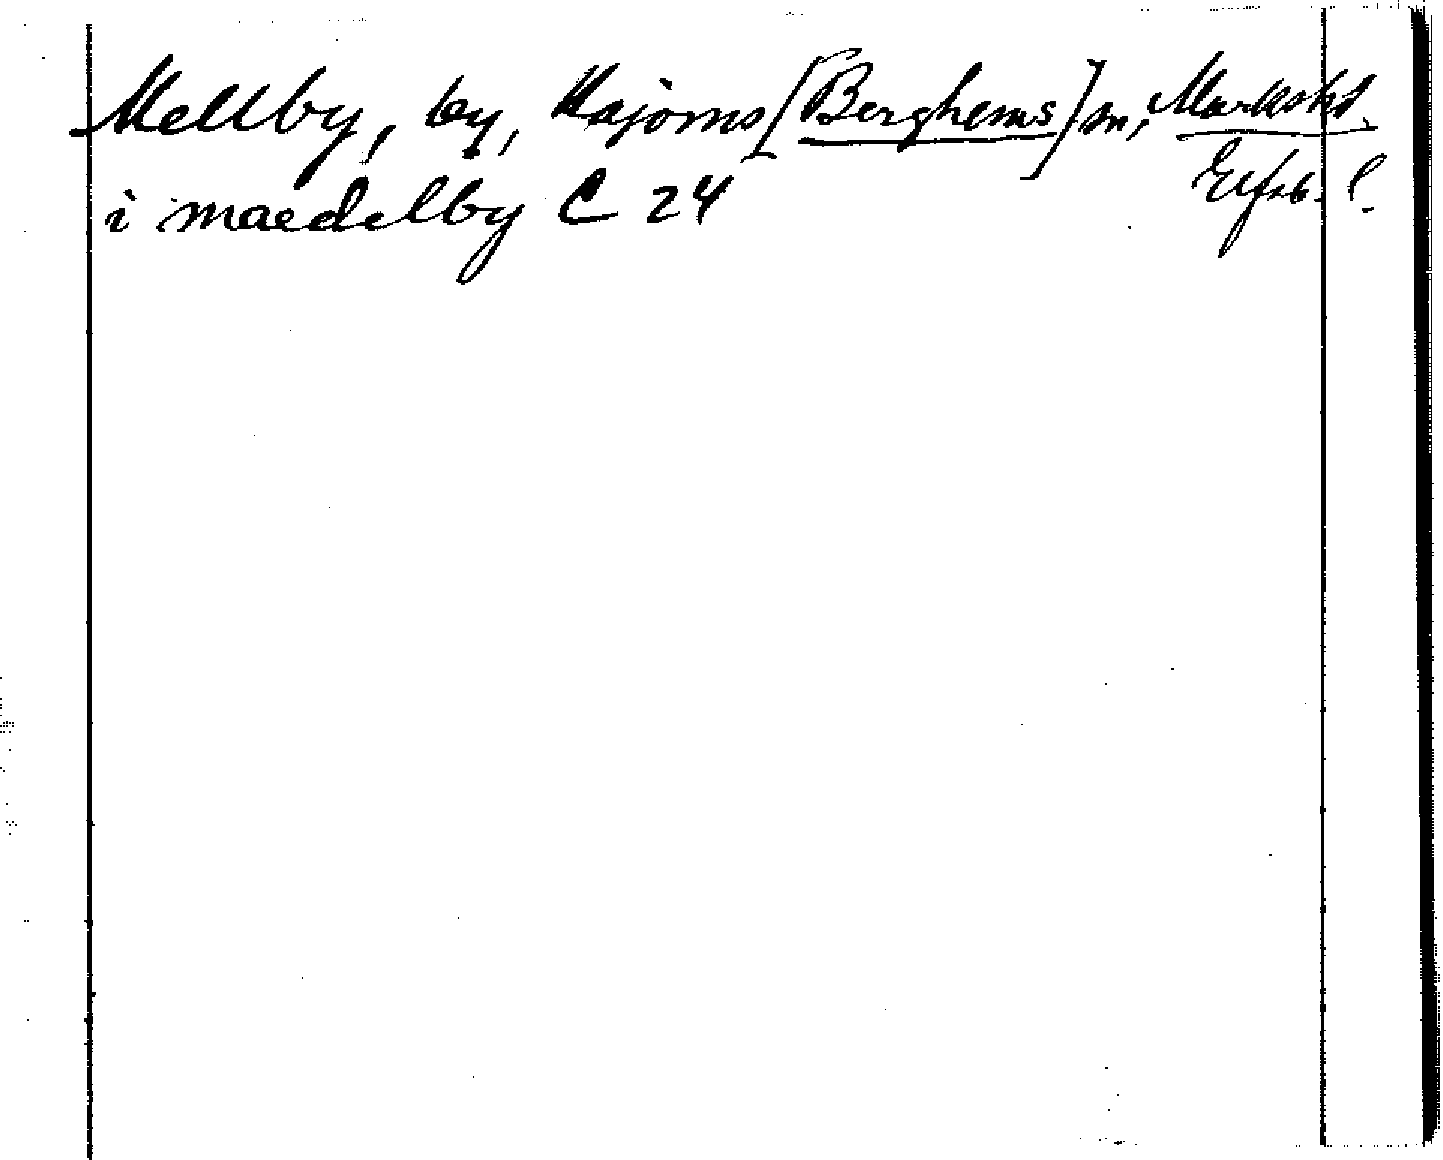 Mellby, by, Hajoms [Berghems] sn, Markshd.
Elfsb. l.
i maedelby C 24